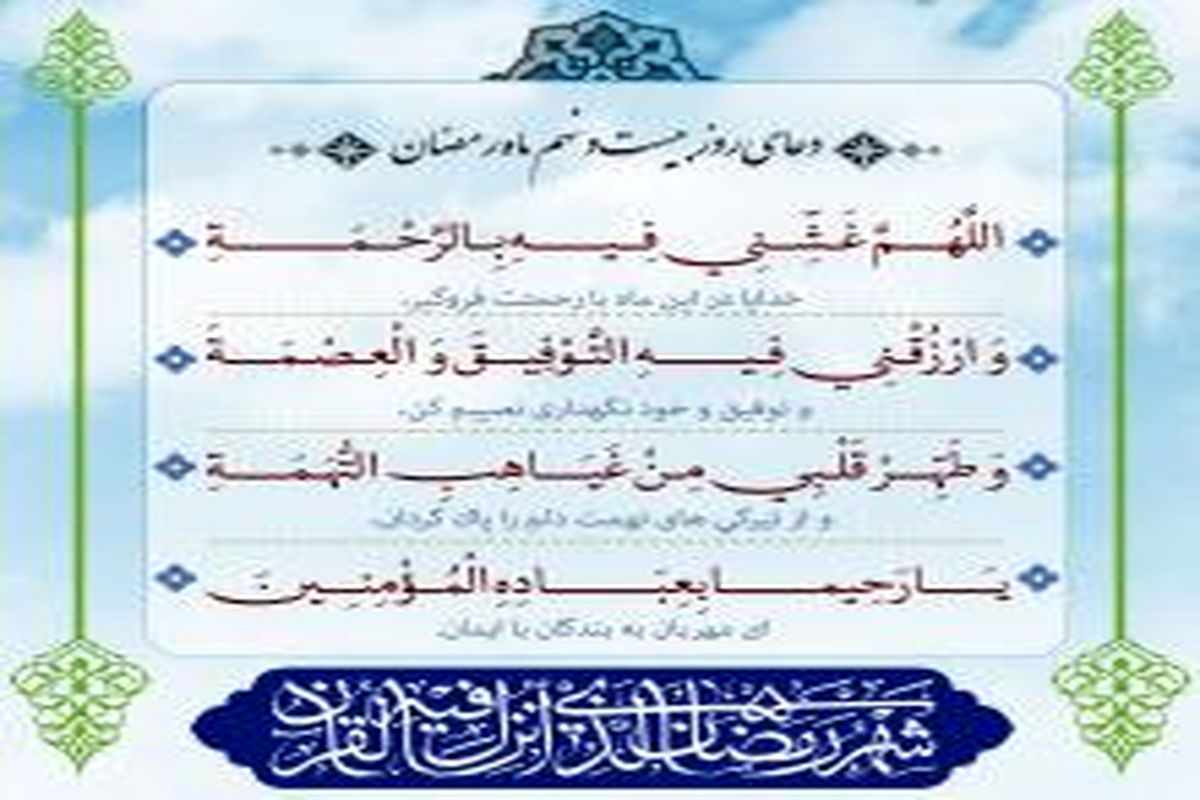 دعای روز بیست و نهم ماه رمضان
اللَّهُمَّ غَشِّنِي فِيهِ بِالرَّحْمَةِ
خدایا در این ماه با رحمت فروگیر،
وَ ارْزُقْنِي فِيهِ التَّوْفِيقَ وَ الْعِصْمَةَ
و توفیق و خود نگهداری نصیبم کن،
وَ طَهِّرْ قَلْبِي مِنْ غَيَاهِبِ التُّهَمَةِ
و از تیرگی های تهمت دلم را پاک گردان،
يَا رَحِيما بِعِبَادِهِ الْمُؤْمِنِينَ
ای مهربان به بندگان با ایمان.
شهر رمضان الذي انزل فيه القرآن